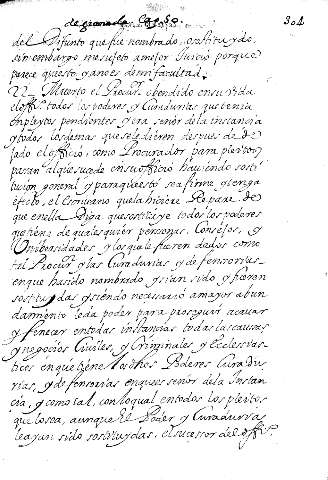 de granada Cap. 50. 302
del Difunto que fue nombrado, o sostituydo,
sin embargo me sujeto a mejor Juicio porque
parece questo ya no es de mi facultad.
22 Muerto el Procur. o bendido en su vida
el officio todos los poderes y Curadurias que tenia
en pleytos pendientes y era señor de la instancia
y todos los demas que se le dieren despues de de
jado el officio, como Procurador para pleytos
pasan al que sucede en su officio haviendo sosti
tucion general, y para que esta sea firme y tenga
efeto, el Escrivano que la hiciere Repare de
que en ella Diga que sostituye todos los poderes
que tiene de qualesquier personas, Consejos, y
Universidades y los que le fueren dados como
tal Procur. y las Curadurias y defensorias
en que ha sido nombrado y sian sido y fueron
sostituydas y siendo necesario a mayor abun
damiento le da poder para proseguir acavar
y finecer en todas instancias todas las causas
y negocios Civiles, y Criminales y Ecclesias
ticos en que tiene los dhos Poderes Curadu
rias, y defensorias en que es señor de la Instan
cia, y como tal, con lo qual en todos los pleitos
que los ea, aunque El Poder y Curadurias
le ayan sido sostituydas, el sucesor del offi.º